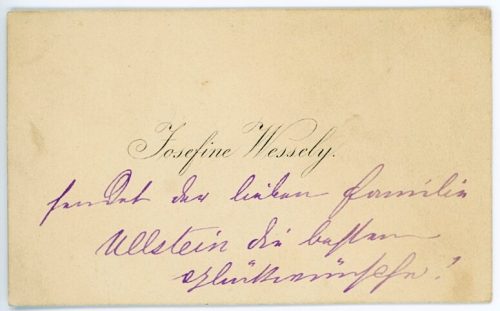 Josefine Wessely.
sendet der lieben Familie
Ullstein die besten
Glückwünsche!